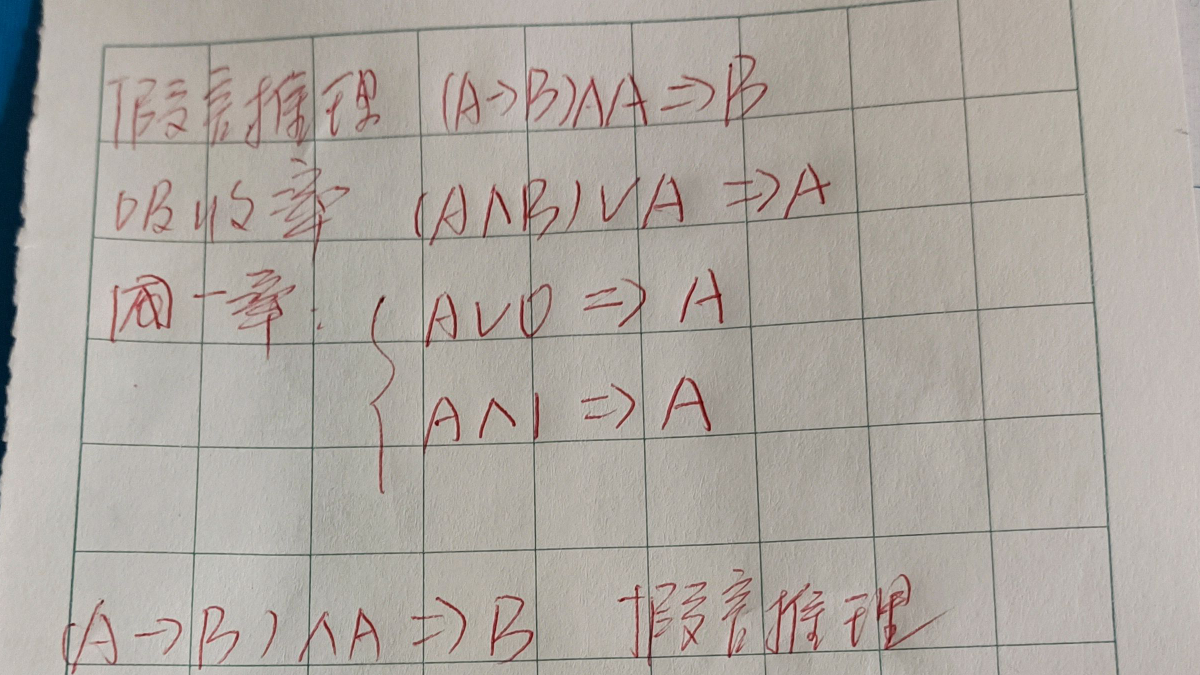 假言推理 (A→B)∧A⇒B
吸收率 (A∧B)∨A ⇒A
同一率: { A∨0 ⇒ A
A∧1 ⇒ A
(A→B)∧A⇒B 假言推理